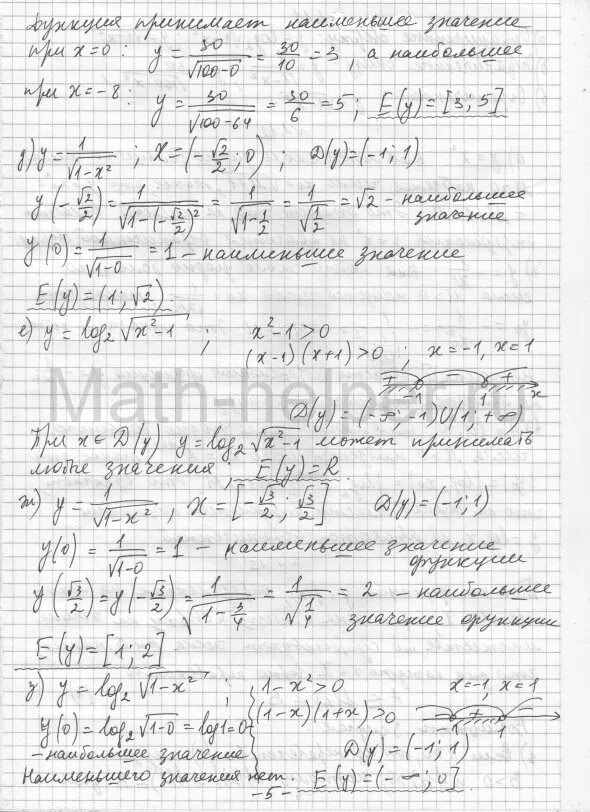 Функция принимает наименьшее значение
при x=0 : y = 30/√(100-0) = 30/10 = 3, а наибольшее
при x=-8 : y = 30/√(100-64) = 30/6 = 5; E(y)=[3;5]
д) y = 1/√(1-x²) ; X=(-√2/2; 0) ; D(y)=(-1;1)
y(-√2/2) = 1/√(1-(-√2/2)²) = 1/√(1-1/2) = 1/√(1/2) = √2 - наибольшее значение
y(0) = 1/√(1-0) = 1 - наименьшее значение
E(y)=(1;√2).
е) y = log₂√(x²-1) ; x²-1>0
(x-1)(x+1)>0 ; x=-1, x=1
+ - +
-1 1 x
D(y)=(-∞;-1)U(1;+∞)
При x∈D(y) y=log₂√(x²-1) может принимать
любые значения; E(y)=R.
ж) y = 1/√(1-x²), X=[-√3/2; √3/2] D(y)=(-1;1)
y(0) = 1/√(1-0) = 1 - наименьшее значение функции
y(√3/2)=y(-√3/2) = 1/√(1-3/4) = 1/√(1/4) = 2 - наибольшее значение функции
E(y)=[1;2]
з) y = log₂√(1-x²) ; 1-x²>0 x=-1, x=1
(1-x)(1+x)>0 - + -
-1 1
y(0)=log₂√(1-0)=log1=0
- наибольшее значение D(y)=(-1;1)
Наименьшего значения нет. E(y)=(-∞;0].
-5-
Math-helper.ru